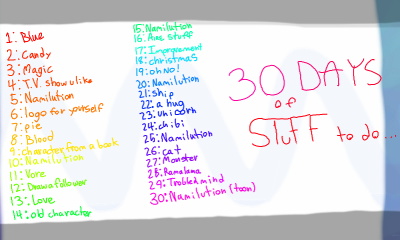 1: Blue
2: Candy
3: Magic
4: T.V. show u like
5: Namilution
6: logo for yourself
7: pie
8: Blood
9: character from a book
10: Namilution
11: Vore
12: Draw a follower
13: Love
14: old character
15: Namilution
16: Aine stuff
17: Improvement
18: christmas
19: oh no!
20: Namilution
21: ship
22: a hug
23: Unicorn
24: chibi
25: Namilution
26: cat
27: Monster
28: Ramalama
29: Trobled mind
30: Namilution (toon)
30 DAYS
of
STUFF to do...